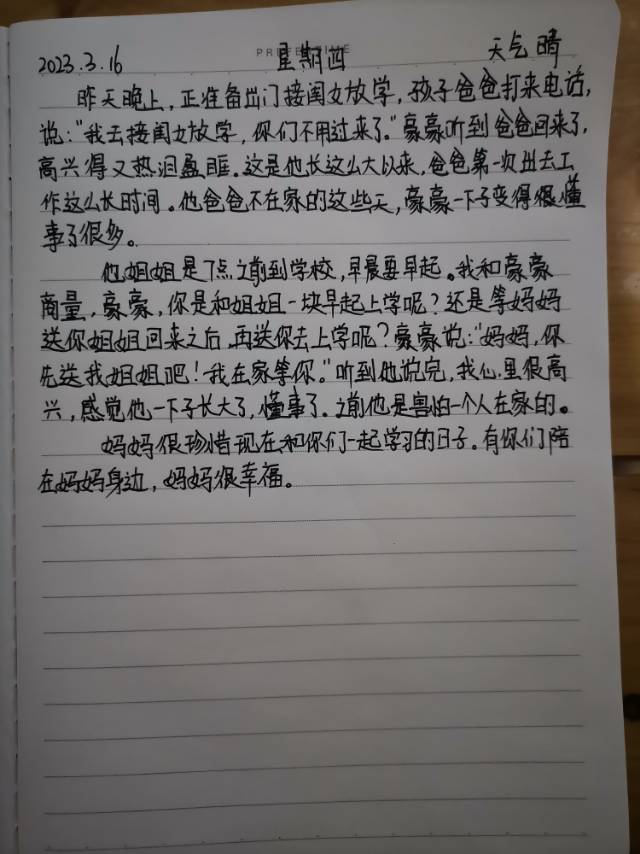 2023.3.16 星期四 天气晴
昨天晚上，正准备出门接闺女放学，孩子爸爸打来电话，
说："我去接闺女放学，你们不用过来了。"豪豪听到爸爸回来了，
高兴得又热泪盈眶。这是他长这么大以来，爸爸第一次出去工
作这么长时间。他爸爸不在家的这些天，豪豪一下子变得很懂
事了很多。
他姐姐是7点之前到学校，早晨要早起。我和豪豪
商量，豪豪，你是和姐姐一块早起上学呢？还是等妈妈
送你姐姐回来之后，再送你去上学呢？豪豪说："妈妈，你
先送我姐姐吧！我在家等你。"听到他说完，我心里很高
兴，感觉他一下子长大了，懂事了。之前他是害怕一个人在家的。
妈妈很珍惜现在和你们一起学习的日子。有你们陪
在妈妈身边，妈妈很幸福。